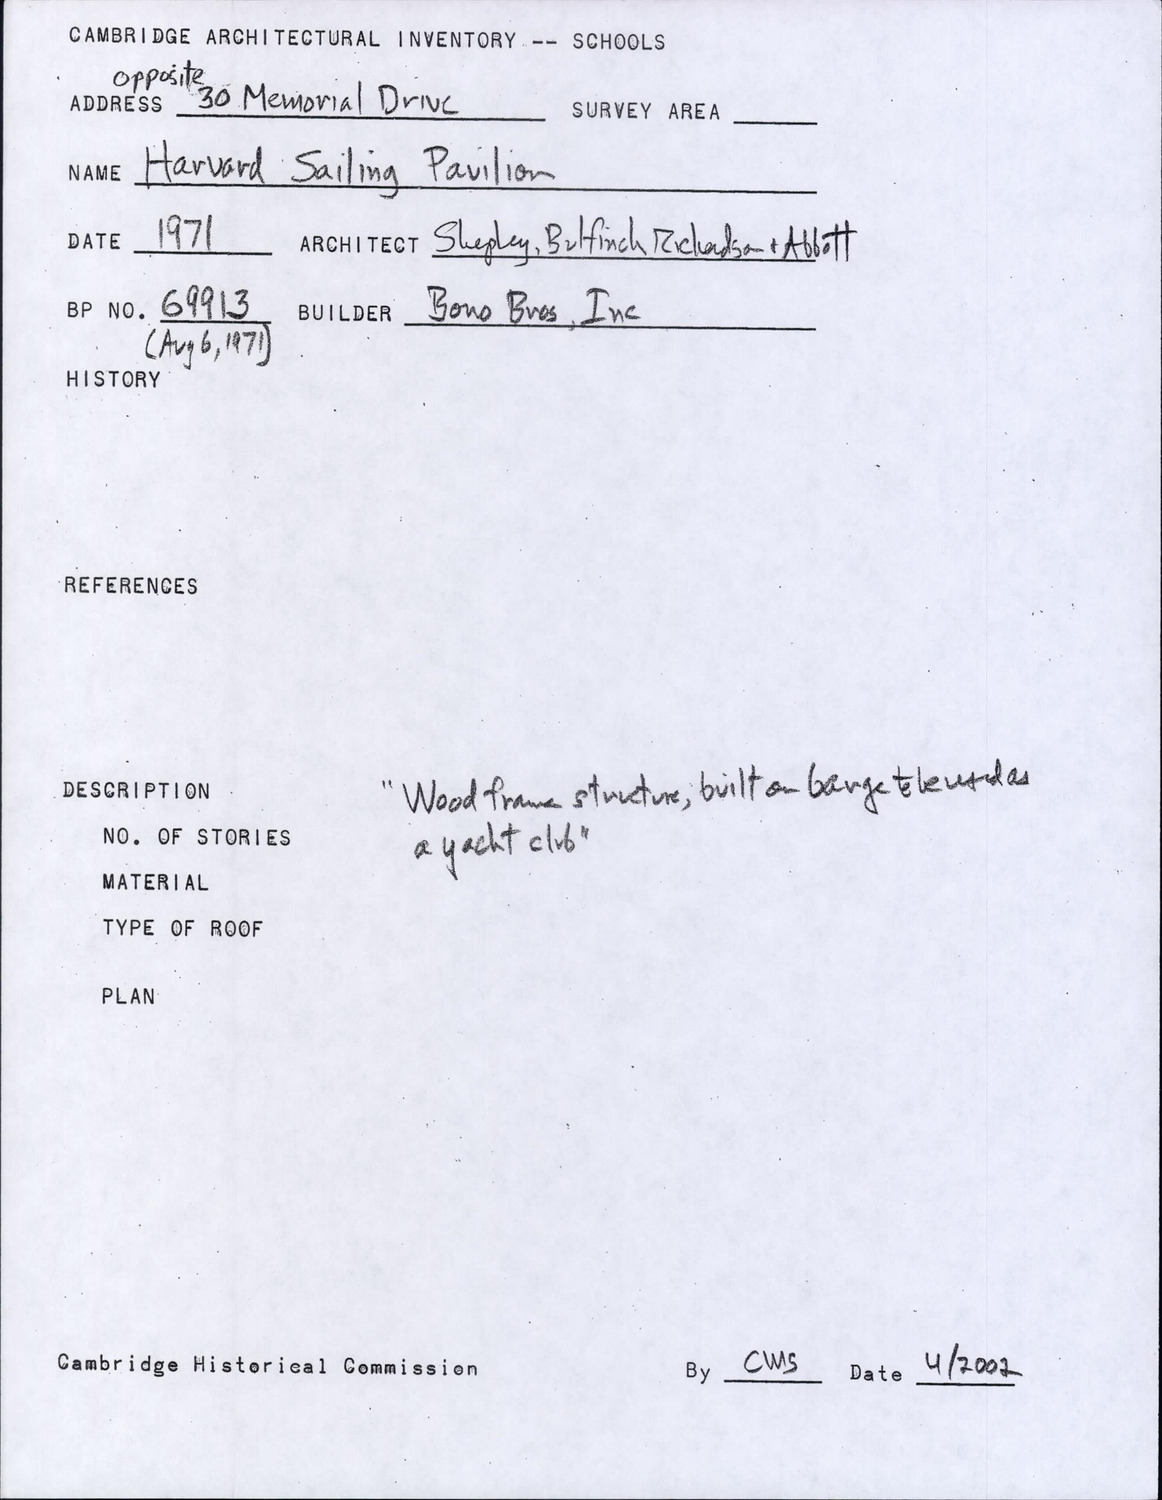 CAMBRIDGE ARCHITECTURAL INVENTORY -- SCHOOLS
opposite
ADDRESS 30 Memorial Drive SURVEY AREA
NAME Harvard Sailing Pavilion
DATE 1971 ARCHITECT Shepley, Bulfinch Richardson + Abbott
BP NO. 69913 BUILDER Bono Bros, Inc
(Aug 6, 1971)
HISTORY
REFERENCES
DESCRIPTION "Wood frame structure, built on barge to be used as
NO. OF STORIES a yacht club"
MATERIAL
TYPE OF ROOF
PLAN
Cambridge Historical Commission By CMS Date 4/2002